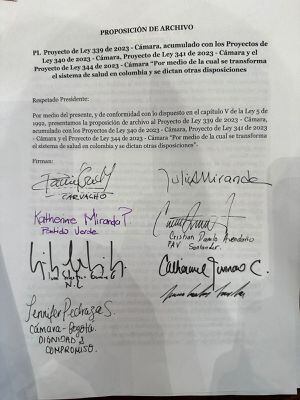 PROPOSICIÓN DE ARCHIVO
PL Proyecto de Ley 339 de 2023 - Cámara, acumulado con los Proyectos de
Ley 340 de 2023 - Cámara, Proyecto de Ley 341 de 2023 - Cámara y el
Proyecto de Ley 344 de 2023 - Cámara "Por medio de la cual se transforma
el sistema de salud en colombia y se dictan otras disposiciones
Respetado Presidente:
Por medio del presente, y de conformidad con lo dispuesto en el capítulo V de la Ley 5 de
1992, presentamos la proposición de archivo al Proyecto de Ley 339 de 2023 - Cámara,
acumulado con los Proyectos de Ley 340 de 2023 - Cámara, Proyecto de Ley 341 de 2023
- Cámara y el Proyecto de Ley 344 de 2023 - Cámara "Por medio de la cual se transforma
el sistema de salud en colombia y se dictan otras disposiciones".
Firman:
CARVACHO
Julia Miranda
Katherine Miranda P.
Partido Verde
Cristian Danilo Avendaño
PAV
Santander.
N.L
Catherine Juvinao C.
Jennifer Pedraza S.
Cámara - Bogotá.
DIGNIDAD &
COMPROMISO.